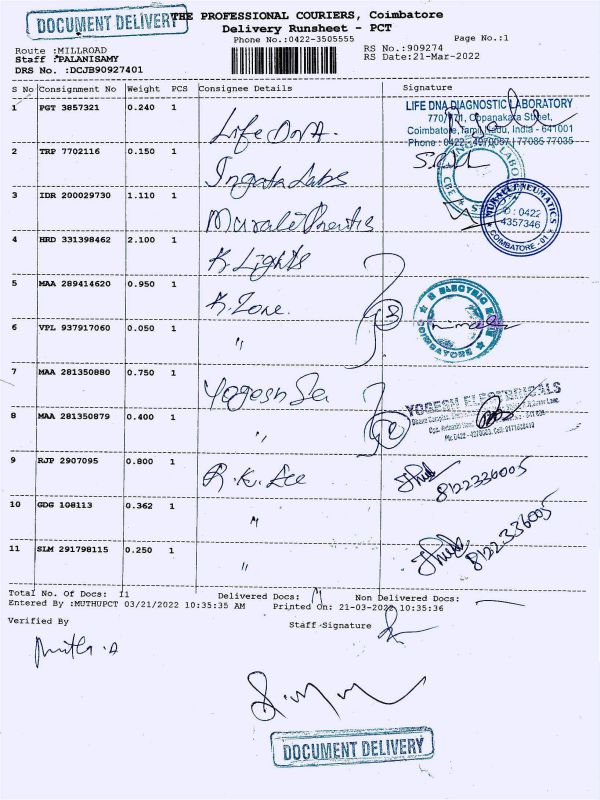 DOCUMENT DELIVERY
THE PROFESSIONAL COURIERS, Coimbatore
Delivery Runsheet - PCT
Phone No.:0422-3505555
Page No.:1
Route :MILLROAD
Staff :PALANISAMY
DRS No. :DCJB90927401
RS No.:909274
RS Date:21-Mar-2022
S No Consignment No Weight PCS Consignee Details Signature
1 PGT 3857321 0.240 1 Life DNA.
LIFE DNA DIAGNOSTIC LABORATORY
770/ Oppanakara Street,
Coimbatore, Tamil Nadu, India - 641001
Phone : 0422 - 77085 77035
2 TRP 7702116 0.150 1
3 IDR 200029730 1.110 1
MURALI PNEUMATICS
: 0422
4357346
COIMBATORE - 01
4 HRD 331398462 2.100 1 K. Lights
5 MAA 289414620 0.950 1 K. Zone.
ELECTRIC
COIMBATORE
6 VPL 937917060 0.050 1 "
7 MAA 281350880 0.750 1 Yogesh
YOGESH ELECTRICALS
8 MAA 281350879 0.400 1 "
9 RJP 2907095 0.800 1 R.K.
8122336005
10 GDG 108113 0.362 1 "
8122336005
11 SLM 291798115 0.250 1 "
Total No. Of Docs: 11 Delivered Docs: Non Delivered Docs:
Entered By :MUTHUPCT 03/21/2022 10:35:35 AM Printed On: 21-03-2022 10:35:36
Verified By Staff Signature
DOCUMENT DELIVERY